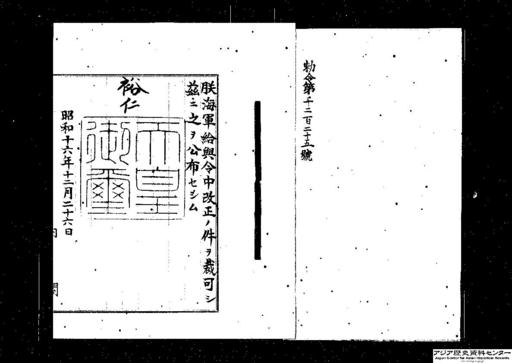 勅令第千二百二十五號
朕海軍給與令中改正ノ件ヲ裁可シ
茲ニ之ヲ公布セシム
裕仁
天皇
御璽
昭和十六年十二月二十六日
内閣
アジア歴史資料センター
Japan Center for Asian Historical Records